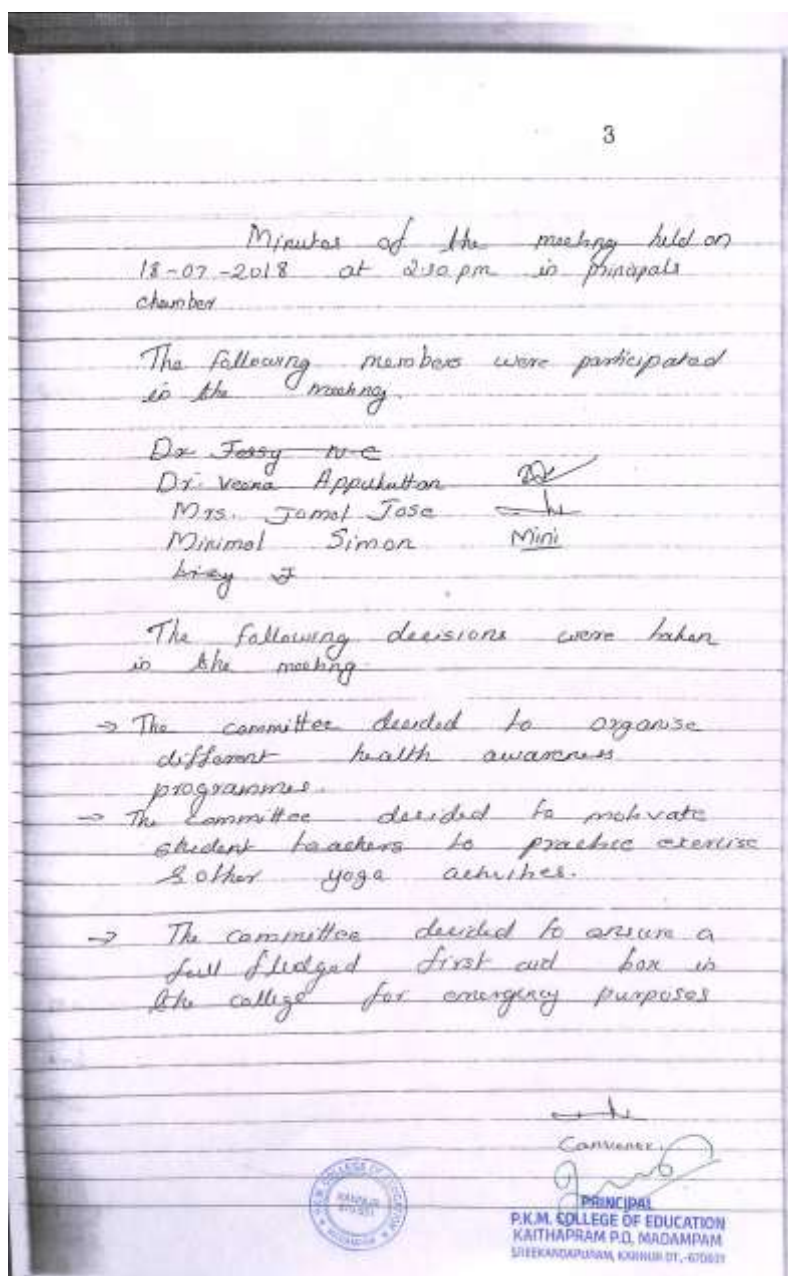 3
Minutes of the meeting held on
18-07-2018 at 2.30 pm in principals
chamber
The following members were participated
in the meeting.
Dr Jessy N C
Dr. Veena Appukuttan
Mrs. Jomol Jose
Minimol Simon Mini
Lizy J
The following decisions were taken
in the meeting
→ The committee decided to organise
different health awareness
programmes.
→ The committee decided to motivate
student teachers to practice exercise
& other yoga activities.
→ The committee decided to ensure a
full fledged first aid box in
the college for emergency purposes
Convener.
PRINCIPAL
P.K.M. COLLEGE OF EDUCATION
KAITHAPRAM P.O, MADAMPAM
SREEKANDAPURAM, KANNUR DT.-670631
P.K.M. COLLEGE OF EDUCATION
MADAMPAM